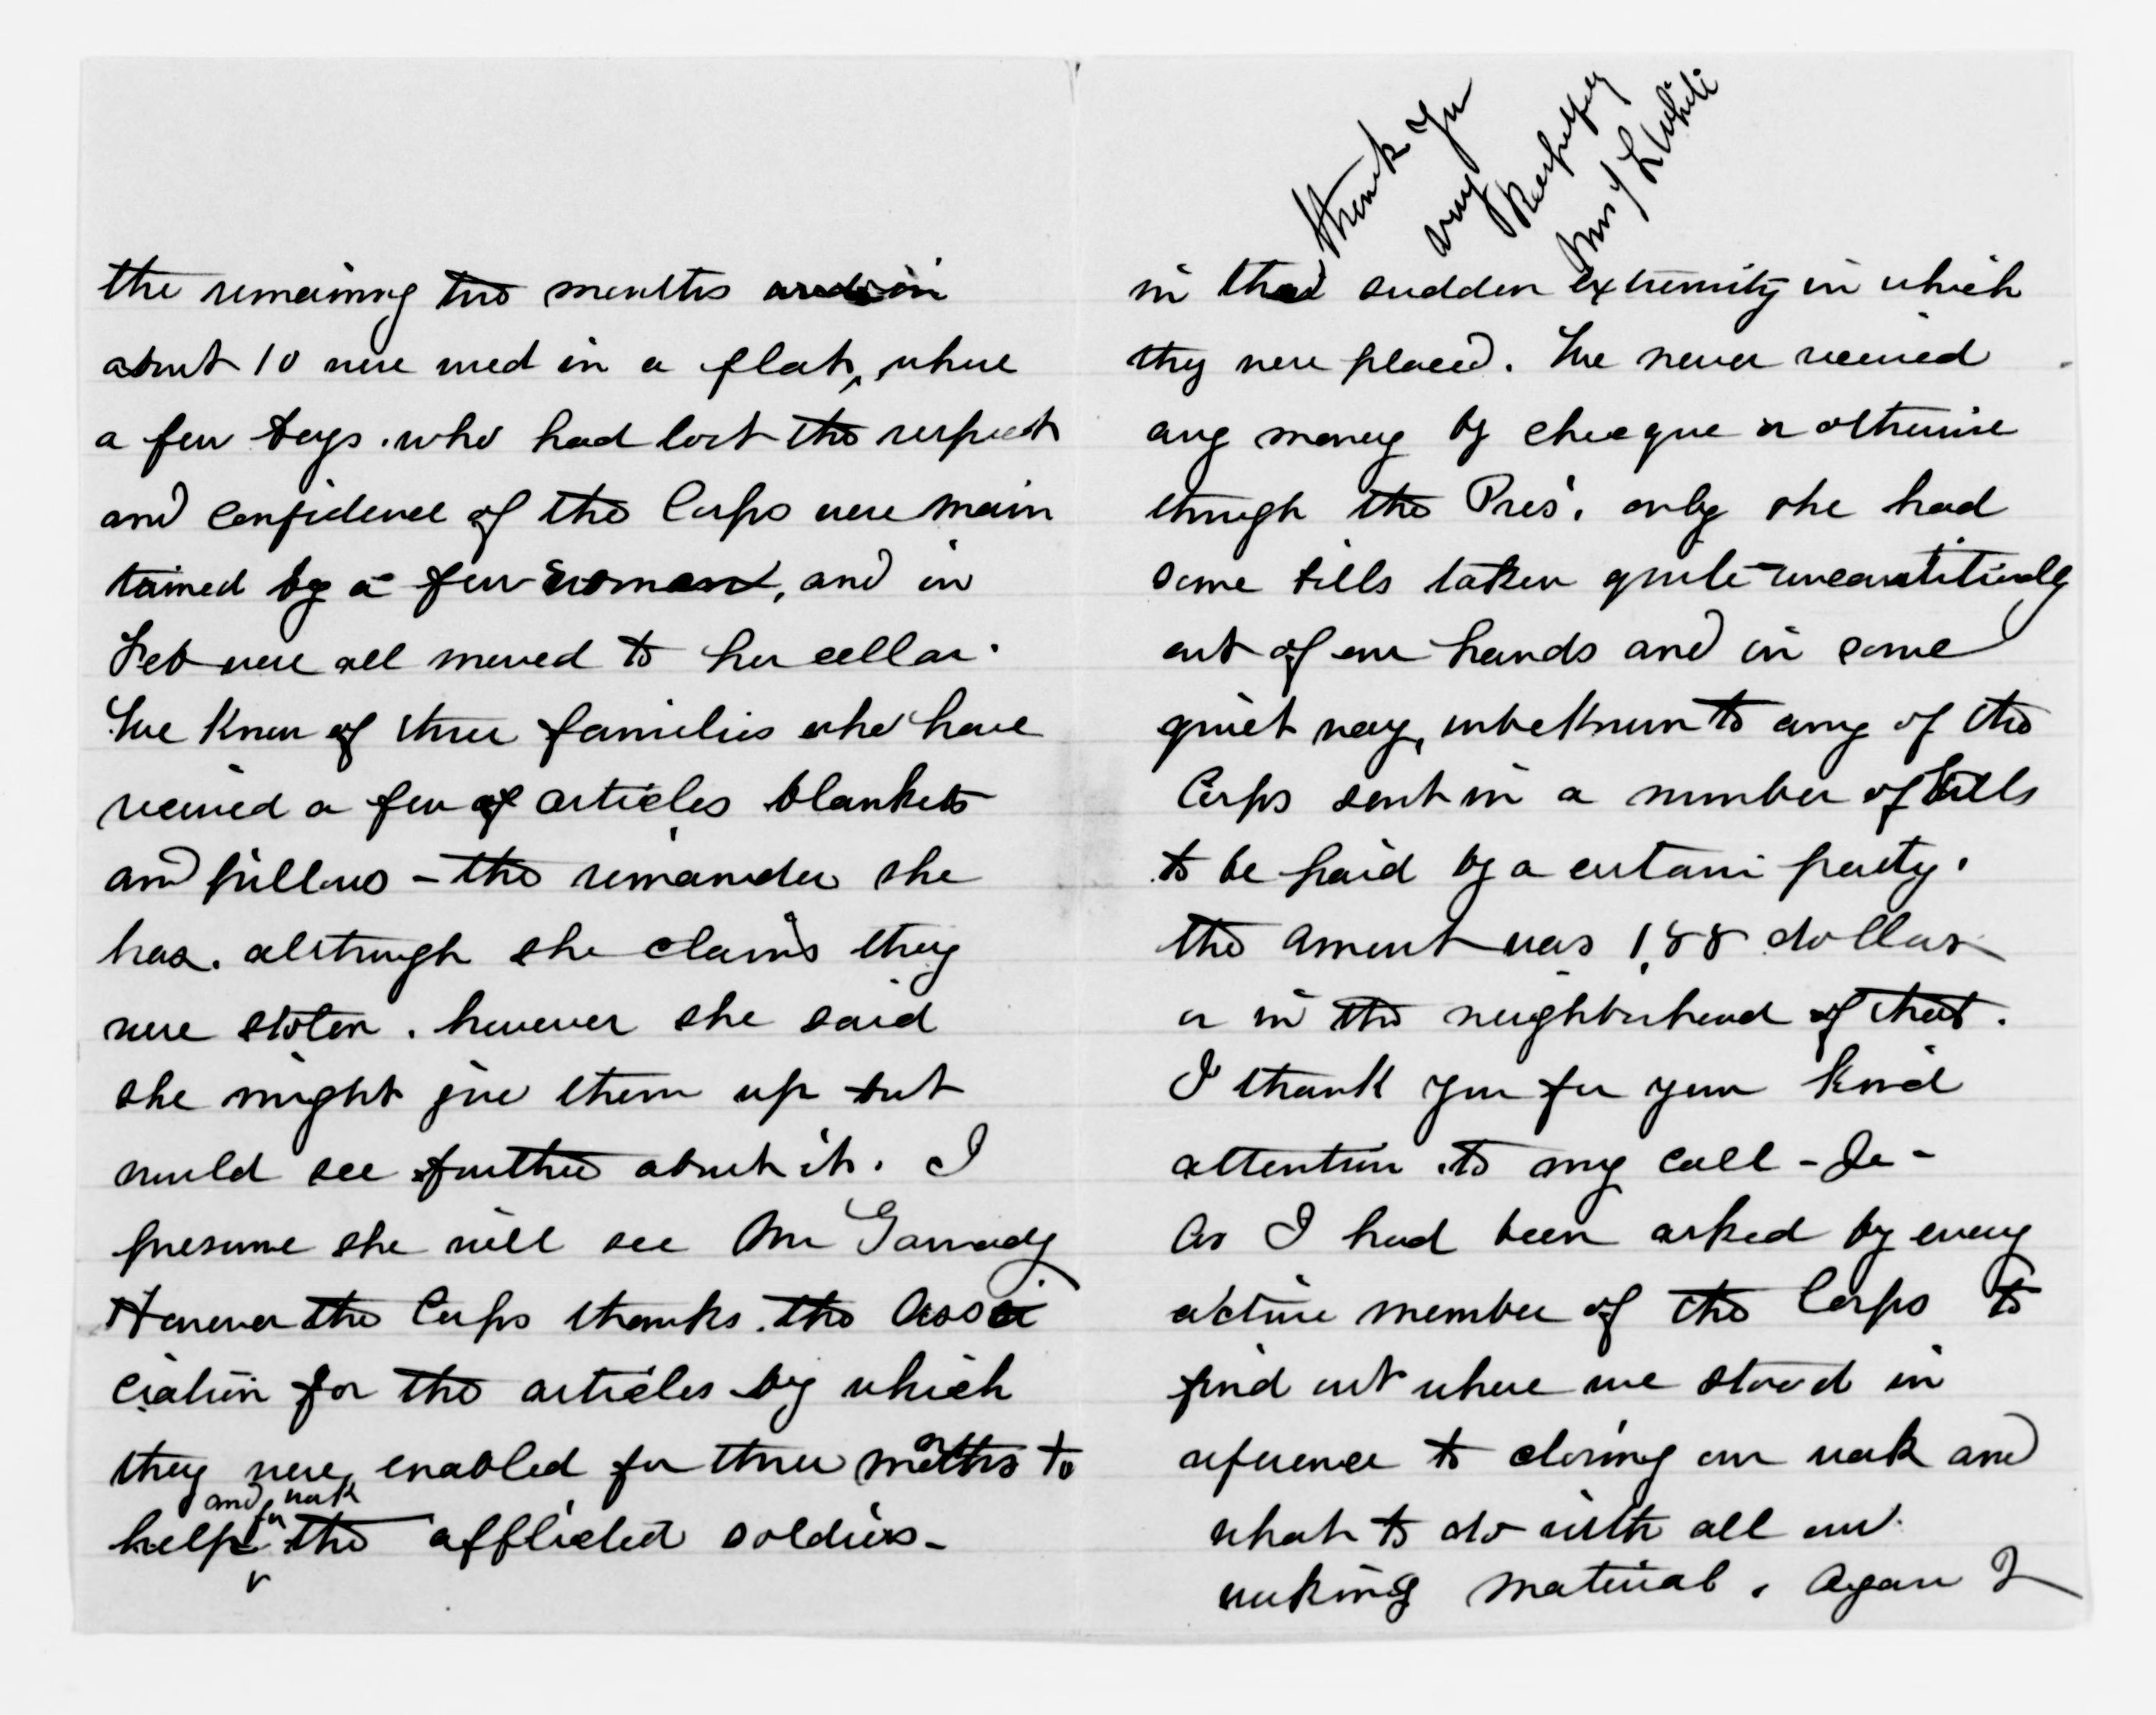 the remaining two months and in
about 10 were used in a flat, where
a few boys. who had lost the respect
and confidence of the Corps were main
tained by a few women, and in
Feb were all moved to her cellar.
We know of three families who have
received a few of articles blankets
and pillows - the remainder she
has. although she claims they
were stolen. however she said
she might give them up but
would see further about it. I
presume she will see Mr
However the Corps thanks the Asso
ciation for the articles by which
they were enabled for three months to
help and work for the afflicted soldiers -
in that sudden extremity in which
they were placed. We never received
any money by checque or otherwise
through the Pres'. only she had
some bills taken quite
out of our hands and in some
quiet way, unbeknown to any of the
Corps sent in a number of bills
to be paid by a certain party.
the amount was 188 dollars
or in the neighborhood of that.
I thank you for your kind
attention to my call -
As I had been asked by every
active member of the Corps to
find out where we stood in
reference to closing our work and
what to do with all our
working material. Again I
thank you
very
Respectfully
Mrs J L White